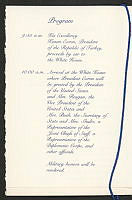 Program
9:50 a.m. His Excellency
Kenan Evren, President
of the Republic of Turkey,
proceeds by car to
the White House
10:00 a.m. Arrival at the White House
where President Evren will
be greeted by the President
of the United States
and Mrs. Reagan, the
Vice President of the
United States and
Mrs. Bush, the Secretary of
State and Mrs. Shultz, a
Representative of the
Joint Chiefs of Staff, a
Representative of the
Diplomatic Corps, and
other officials
Military honors will be
rendered